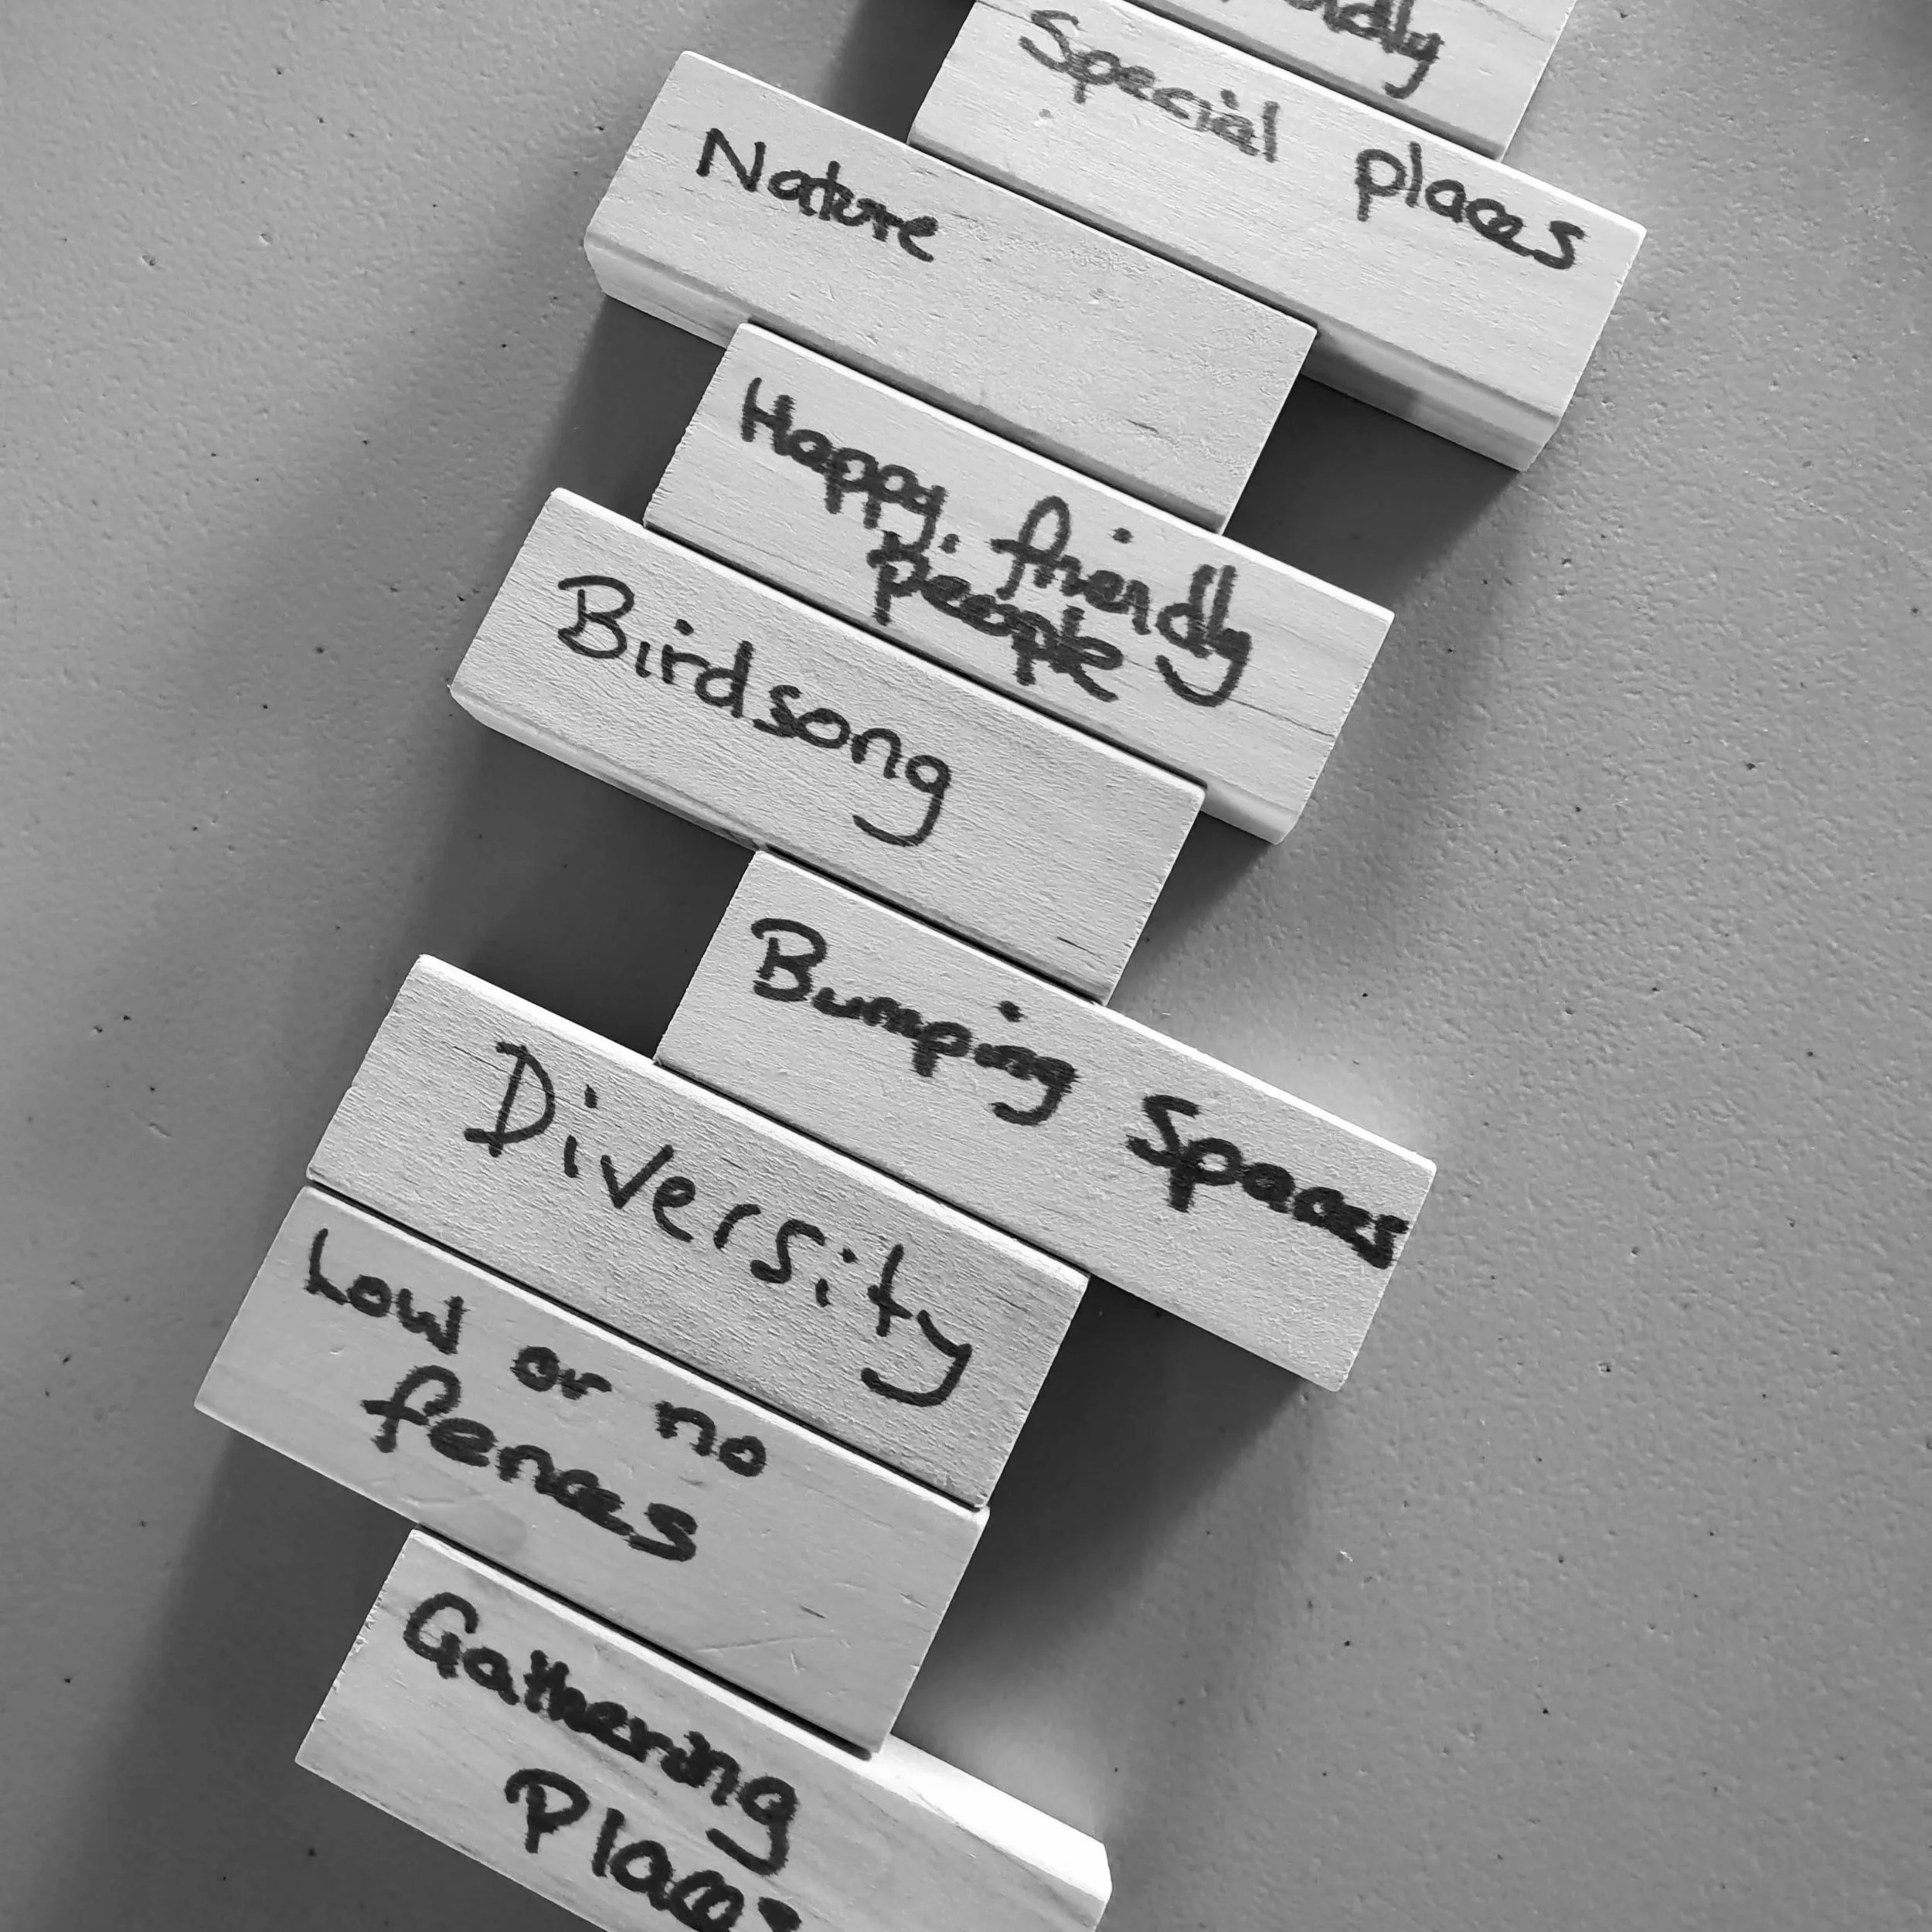 Special places
Nature
Happy, friendly
people
Birdsong
Bumping Spaces
Diversity
Low or no
fences
Gathering
Places